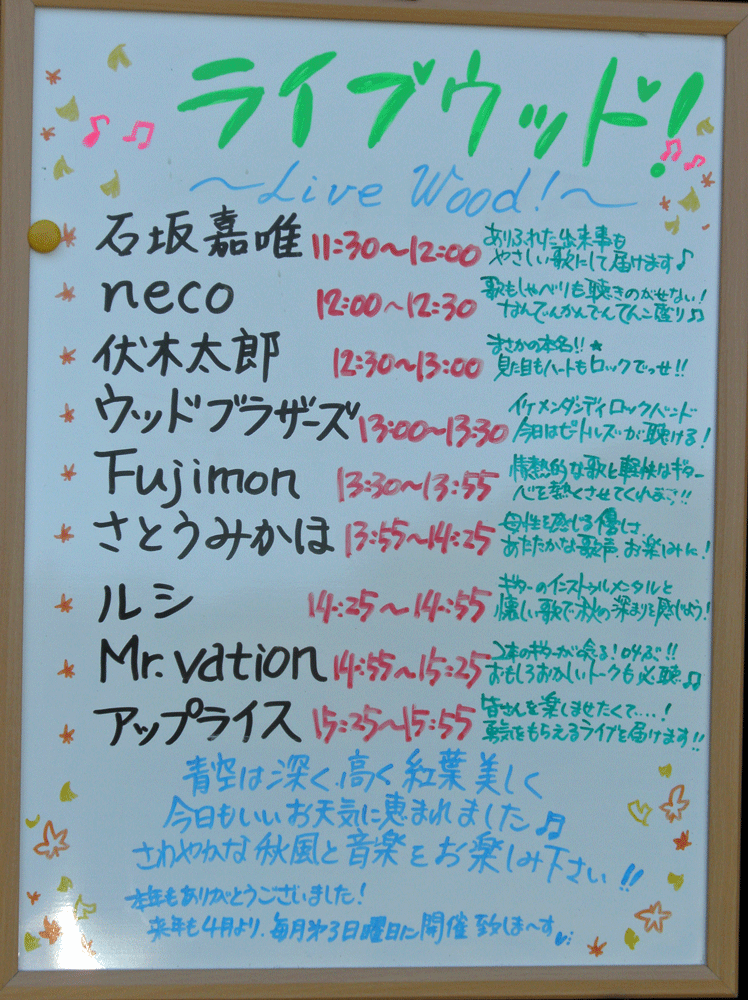 ライブウッド!
～Live Wood!～
石坂嘉唯 11:30～12:00 ありふれた出来事も
やさしい歌にして届けます♪
neco 12:00～12:30 歌もしゃべりも聴きのがせない!
なんでぃんかんでんてんこ盛り♫
伏木太郎 12:30～13:00 まさかの本名!!★
見た目もハートもロックでっせ!!
ウッドブラザーズ 13:00～13:30 イケメンダンディロックバンド
今日はビートルズが聴ける!
Fujimon 13:30～13:55 情熱的な歌と軽快なギター
心を熱くさせてくれまっ!!
さとうみかほ 13:55～14:25 母性を感じる優しさ
あたたかな歌声、お楽しみに!
ルシ 14:25～14:55 ギターのインストゥルメンタルと
懐しい歌で秋の深まりを感じよう!
Mr.vation 14:55～15:25 2本のギターが唸る!叫ぶ!!
おもしろおかしいトークも必聴♫
アップライス 15:25～15:55 皆さんを楽しませたくて....!
勇気をもらえるライブを届けます!!
青空は深く、高く 紅葉美しく
今日もいいお天気に恵まれました♫
さわやかな秋風と音楽をお楽しみ下さい!!
本年もありがとうございました!
来年も4月より、毎月第3日曜日に開催致しま～す